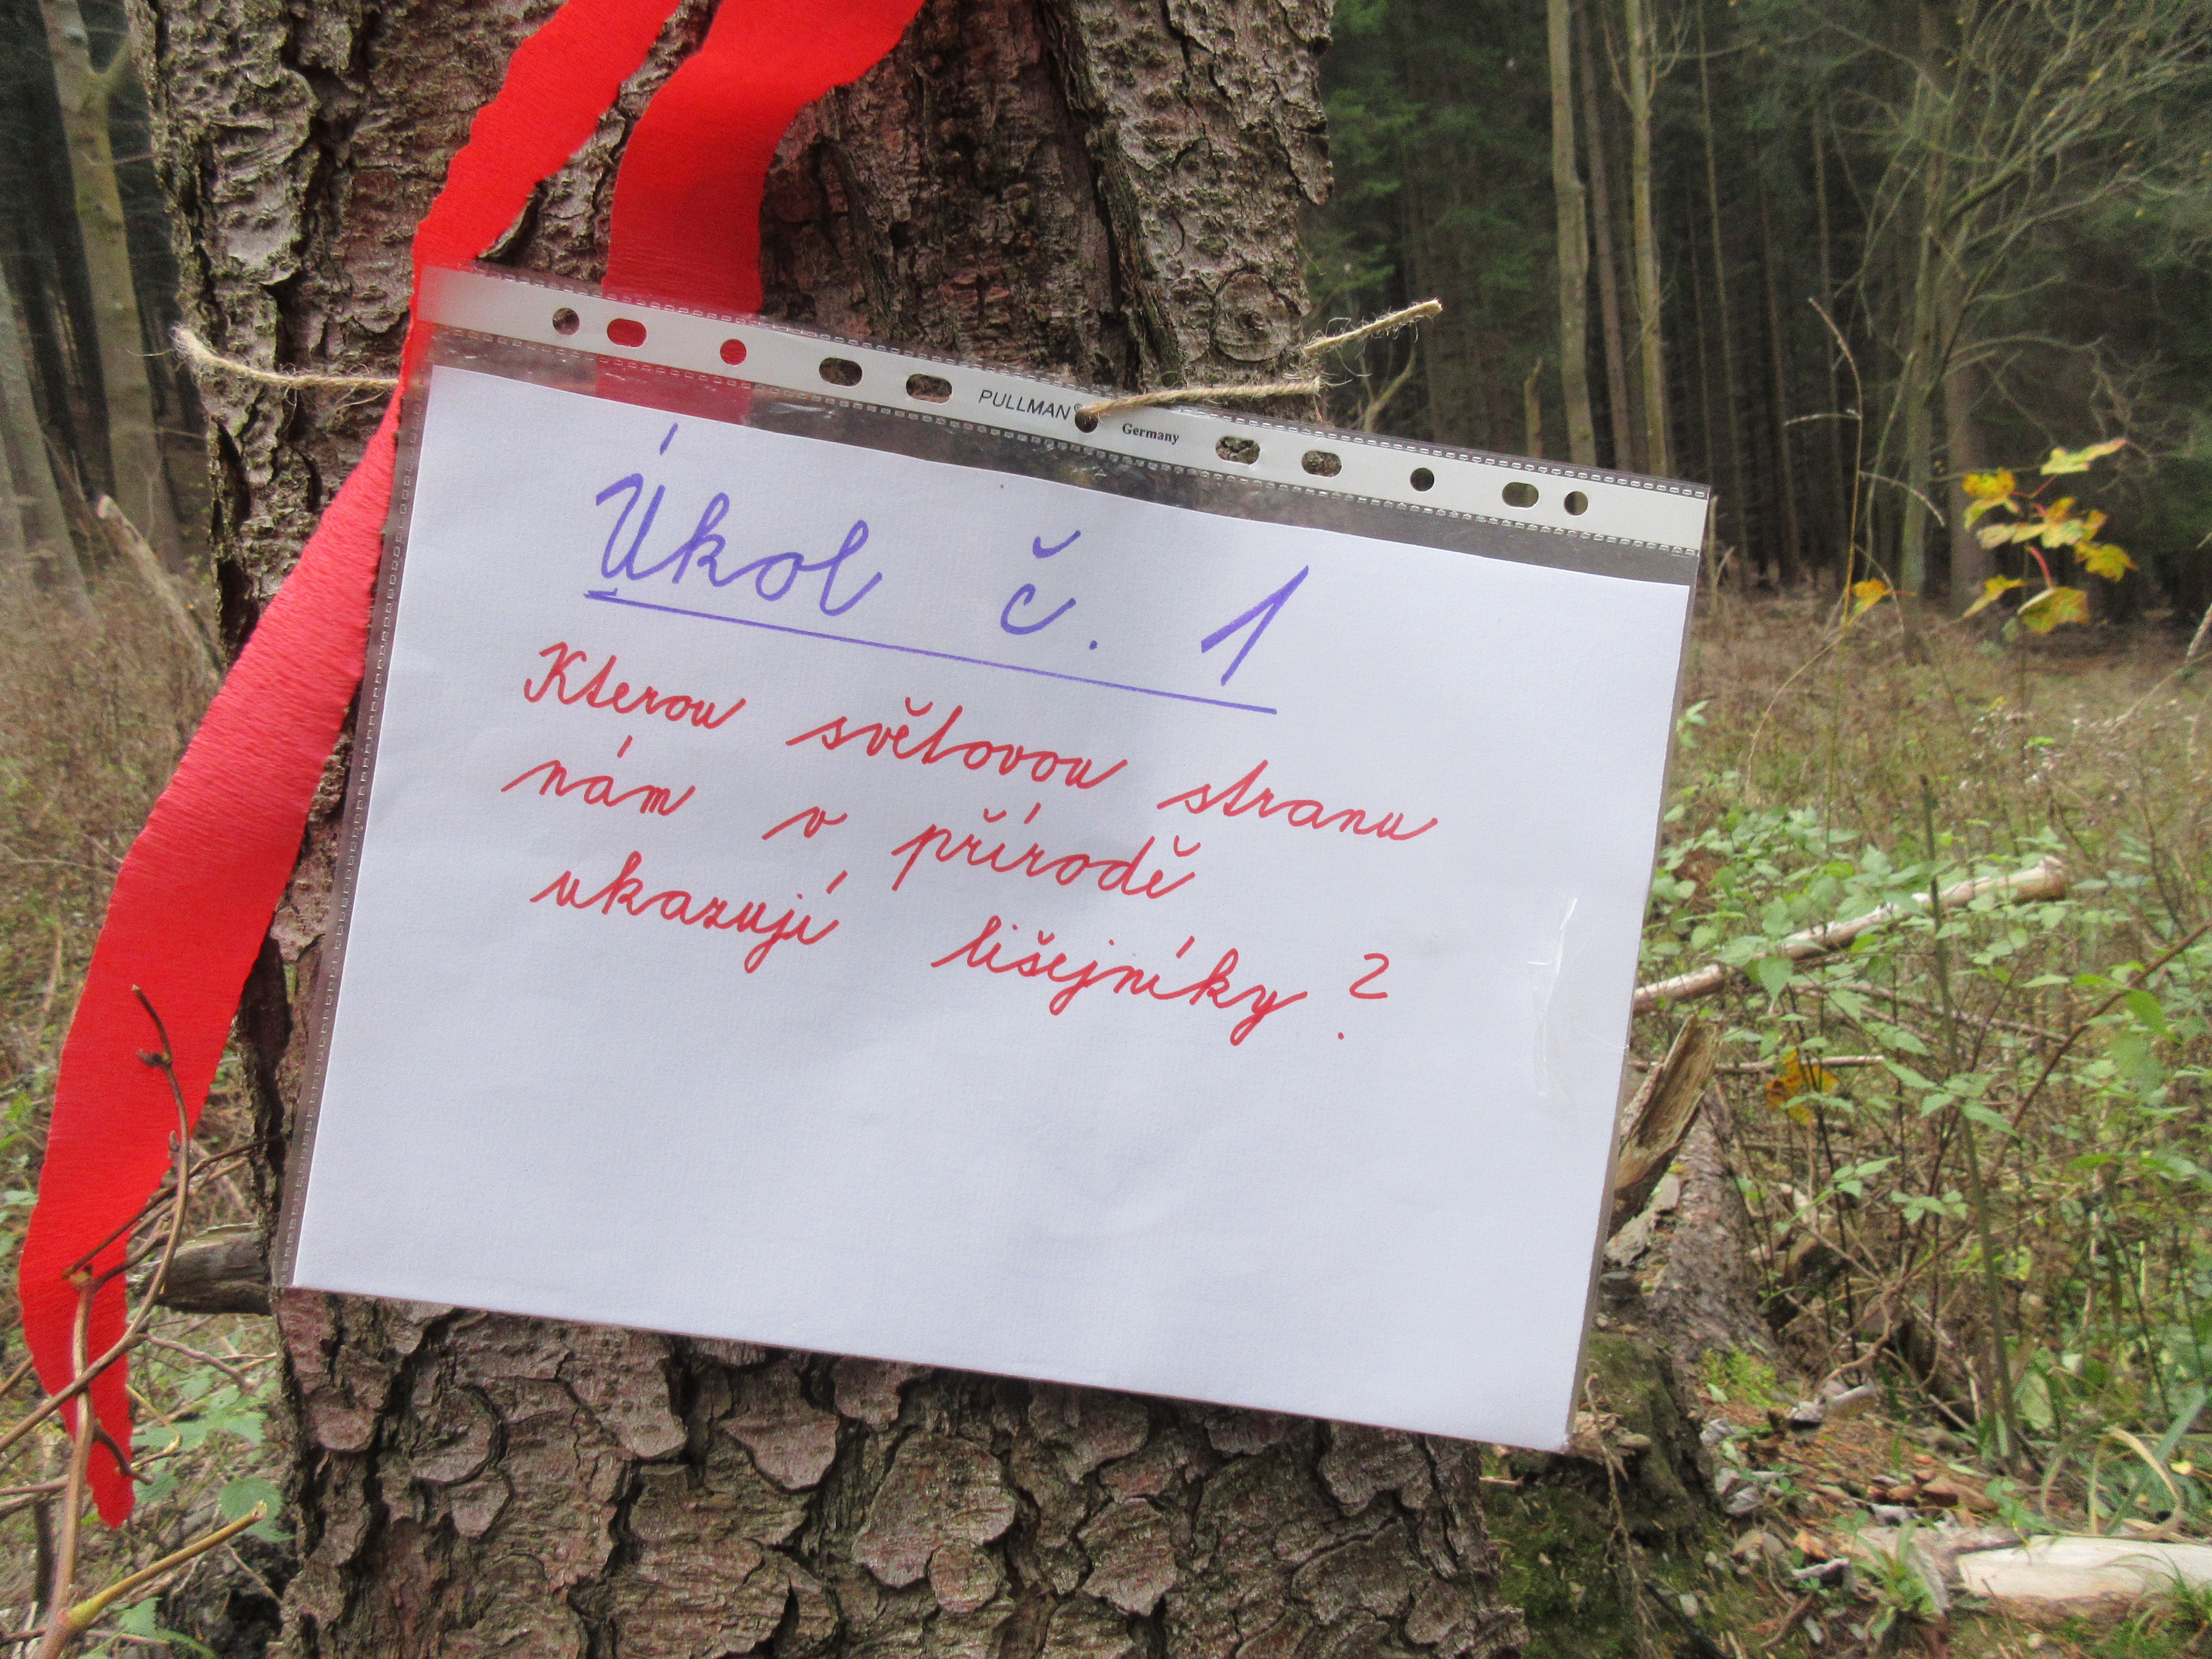 PULLMAN® Germany
Úkol č. 1
Kterou světovou stranu
nám v přírodě
ukazují lišejníky?